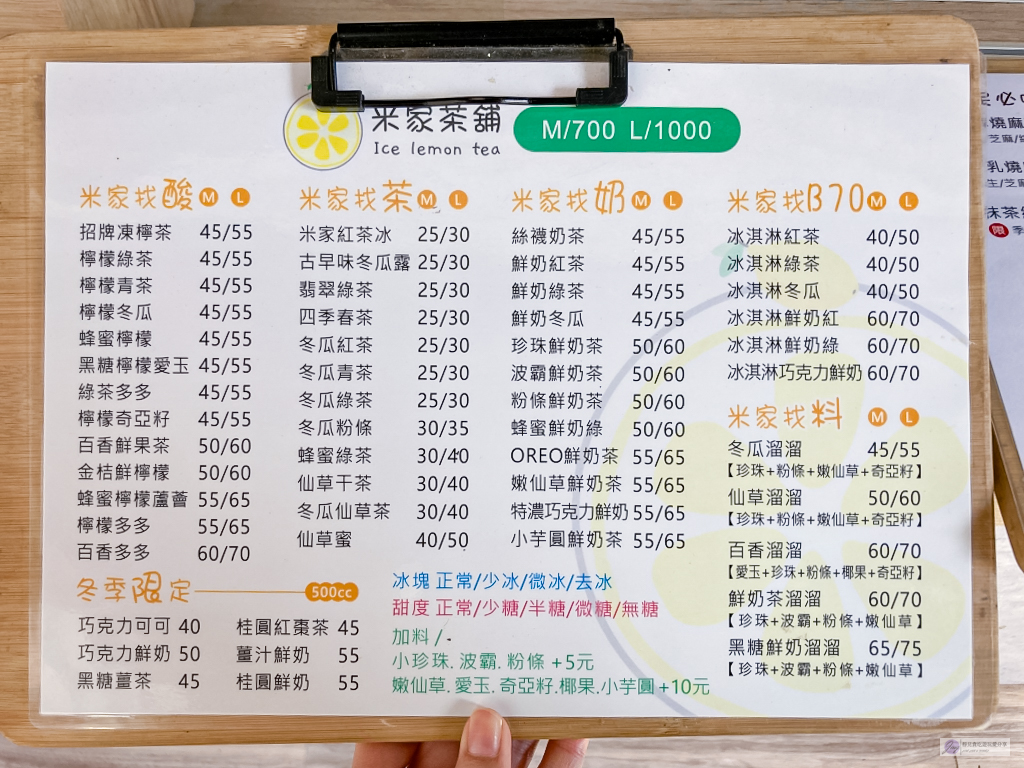 米家茶舖
Ice lemon tea
M/700 L/1000
米家找酸 M L
招牌凍檸茶 45/55
檸檬綠茶 45/55
檸檬青茶 45/55
檸檬冬瓜 45/55
蜂蜜檸檬 45/55
黑糖檸檬愛玉 45/55
綠茶多多 45/55
檸檬奇亞籽 45/55
百香鮮果茶 50/60
金桔鮮檸檬 50/60
蜂蜜檸檬蘆薈 55/65
檸檬多多 55/65
百香多多 60/70
米家找茶 M L
米家紅茶冰 25/30
古早味冬瓜露 25/30
翡翠綠茶 25/30
四季春茶 25/30
冬瓜紅茶 25/30
冬瓜青茶 25/30
冬瓜綠茶 25/30
冬瓜粉條 30/35
蜂蜜綠茶 30/40
仙草干茶 30/40
冬瓜仙草茶 30/40
仙草蜜 40/50
米家找奶 M L
絲襪奶茶 45/55
鮮奶紅茶 45/55
鮮奶綠茶 45/55
鮮奶冬瓜 45/55
珍珠鮮奶茶 50/60
波霸鮮奶茶 50/60
粉條鮮奶茶 50/60
蜂蜜鮮奶綠 50/60
OREO鮮奶茶 55/65
嫩仙草鮮奶茶 55/65
特濃巧克力鮮奶 55/65
小芋圓鮮奶茶 55/65
米家找B70 M L
冰淇淋紅茶 40/50
冰淇淋綠茶 40/50
冰淇淋冬瓜 40/50
冰淇淋鮮奶紅 60/70
冰淇淋鮮奶綠 60/70
冰淇淋巧克力鮮奶 60/70
米家找料 M L
冬瓜溜溜 45/55
【珍珠+粉條+嫩仙草+奇亞籽】
仙草溜溜 50/60
【珍珠+粉條+嫩仙草+奇亞籽】
百香溜溜 60/70
【愛玉+珍珠+粉條+椰果+奇亞籽】
鮮奶茶溜溜 60/70
【珍珠+波霸+粉條+嫩仙草】
黑糖鮮奶溜溜 65/75
【珍珠+波霸+粉條+嫩仙草】
冬季限定 500cc
巧克力可可 40
巧克力鮮奶 50
黑糖薑茶 45
桂圓紅棗茶 45
薑汁鮮奶 55
桂圓鮮奶 55
冰塊 正常/少冰/微冰/去冰
甜度 正常/少糖/半糖/微糖/無糖
加料/
小珍珠.波霸.粉條+5元
嫩仙草.愛玉.奇亞籽.椰果.小芋圓+10元
必
燒麻
芝麻/
乳燒
生/芝麻
抹茶
限 季